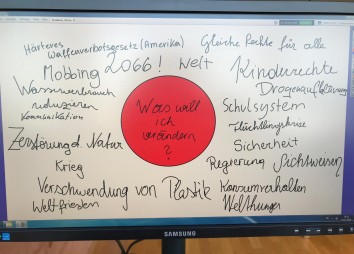 Härteres
Waffenverbotsgesetz (Amerika)
Gleiche Rechte für alle
Mobbing 2066! Welt
Kinderrechte
Drogenaufklärung
Wasserverbrauch
reduzieren
Kommunikation
Was will
ich
verändern
?
Schulsystem
Flüchtlingskrise
Sicherheit
Zerstörung d. Natur
Krieg
Regierung Sichtweisen
Verschwendung von Plastik
Konsumverhalten
Weltfrieden
Welthunger
SAMSUNG